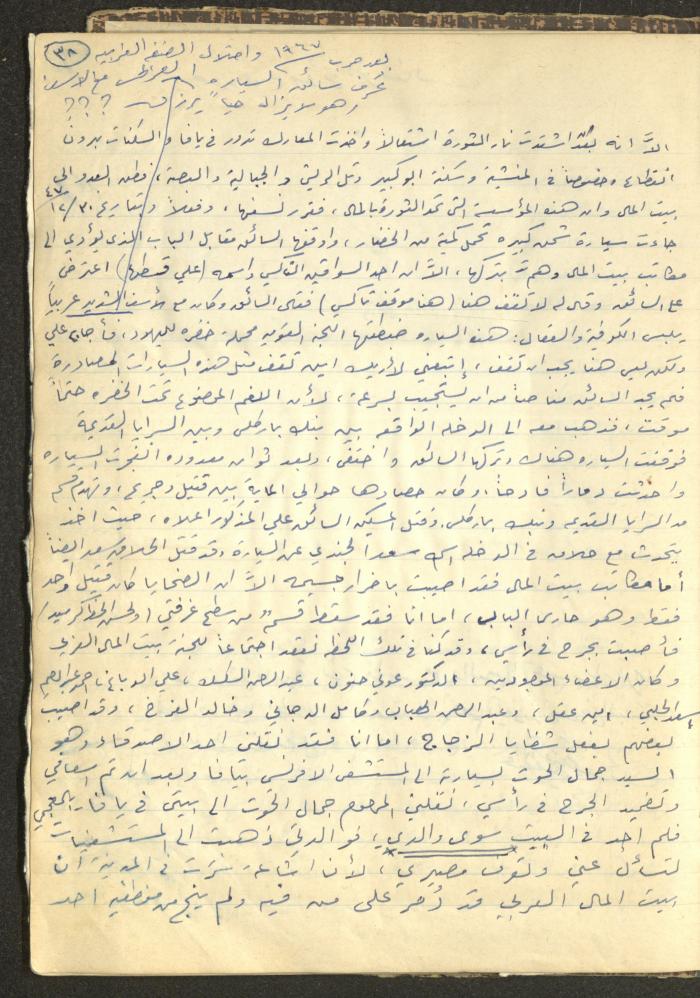 ٣٨
بعد حرب ١٩٦٧ واحتلال الضفه الغربيه
عُرف سائق السيارة مع الاسف
وهو لا يزال حياً يرزق ؟؟؟
الاَّ انه بعد اشتدت نار الثورة اشتعالاً واخذت المعارك تدور في يافا والسكنات بدون
انقطاع وخصوصاً في المنشية وسكنة ابو كبير وتل الريش والجبالية والبصة، فطن العدو الى
بيت المال وان هذه المؤسسة التي تمد الثورة بالمال، فقرر نسفها، وفعلاً وبتاريخ ٣٠/١٢/٤٧
جاءت سيارة شحن كبيره تحمل كمية من الخضار، واوقفها السائق مقابل الباب الذي يؤدي الى
مكاتب بيت المال وهمَّ بتركها، الاَّ ان احد السواقين التاكسي واسمه (علي قسطها) اعترض
على السائق وقال له لا تقف هنا (هنا موقف تاكسي) فقال السائق وكان مع الأسف الشديد عربياً
يلبس الكوفية والعقال: هذه السياره ضبطتها اللجنه القوميه محملة خضره لليهود، فأجابه علي
ولكن ليس هنا يجب ان تقف، إتبعني لأريك اين تقف مثل هذه السيارات المصادرة
فلم يجد السائق مناصاً من ان يستجيب بسرعة، لأن اللغم الموضوع تحت الخضره حتماً
موقت، فذهب معه الى الدخله الواقعه بين بنك باركلس وبين السرايا القديمة
فوقفت السياره هناك وتركها السائق واختفى، وبعد ثوان معدوده انفجرت السياره
واحدثت دماراً فادحاً، وكان حصادها حوالي الماية بين قتيل وجريح، وتهدم قسم
من السرايا القديمه وبنك باركلس وقتل المسكين السائق علي المذكور اعلاه، حيث اخذ
يتحدث مع حلاق في الدخله اسمه سعد الجندي عن السيارة وقد قتل الحلاق سعد ايضاً
أما مكاتب بيت المال فقد اصيبت باضرار جسيمه الاَّ ان الضحايا كان قتيل واحد
فقط وهو حارس الباب، اما انا فقد سقط قسم من سطح غرفتي (ولحسن الحظ كرميد)
فأصبت بجرح في رأسي، وقد كنا في تلك اللحظه نعقد اجتماعاً للجنة بيت المال العربي
وكان الاعضاء الموجودين، الدكتور عوني حنون، عبد الرحمن السكسك، علي الدباغ، احمد عبد الرحيم
اسعد الحلبي، امين عقل، وعبد الرحمن الهباب وكامل الدجاني وخالد الفرخ، وقد اصيب
بعضهم بفعل شظايا الزجاج، اما انا فقد نقلني احد الاصدقاء وهو
السيد جمال الحوت بسيارته الى المستشفى الافرنسي بيافا وبعد ان تم اسعافي
وتضميد الجرح في رأسي، نقلني المرحوم جمال الحوت الى بيتي في يافا بالعجمي
فلم اجد في البيت سوى والدي، فوالدتي ذهبت الى المستشفيات
لتسأل عني وتعرف مصيري، لأن اشاعة سَرَت في المدينة أن
بيت المال العربي قد دُمر على من فيه ولم ينجُ من موظفيه احد